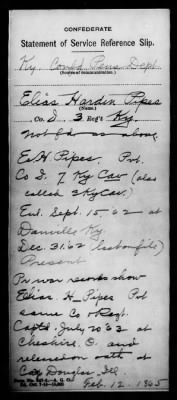 CONFEDERATE
Statement of Service Reference Slip.
Ky. Confd Pens. Dept.
(Source of communication.)
Elias Hardin Pipes
(Name.)
Co. D. 3 Reg't Ky.
Not fd as above
E. H. Pipes. Pvt.
Co D. 7 Ky Cav (also
called 3 Ky Cav.)
Enl. Sept. 15, 62 at
Danville Ky
Dec. 31, 62 (last on file)
Present
Pr war records show
Elias. H. Pipes Pvt
same Co & Regt.
Captd July 20 '63 at
Cheshire, O. and
released on oath at
Camp Douglas, Ill.
Feb. 12. 1865